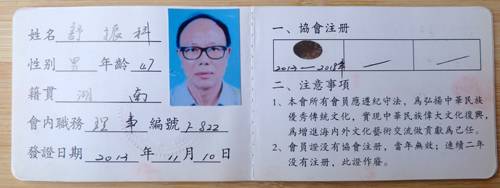 姓名 舒振科
性别 男 年龄 47
籍貫 湖南
會內職務 理事 編號 L822
發證日期 2013 年 11 月 10 日
一、協會注册
2013—2018年
二、注意事項
1、本會所有會員應遵紀守法，爲弘揚中華民族
優秀傳統文化，實現中華民族偉大文化復興，
爲增進海内外文化藝術交流做貢獻爲己任。
2、會員證没有協會注册，當年無效；連續二年
没有注册，此證作廢。